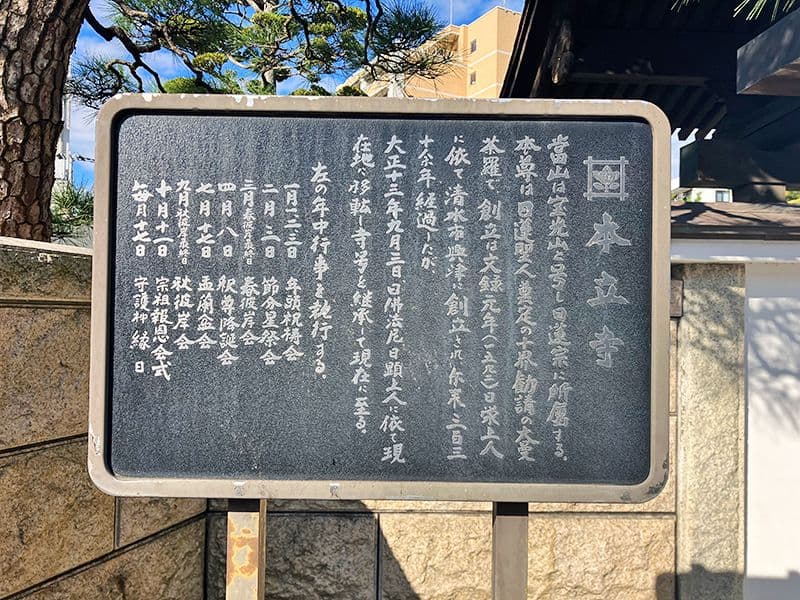 本立寺
當山は宝光山と号し日蓮宗に所属する。
本尊は日蓮聖人奠定の十界勧請の大曼
荼羅で、創立は文録元年(一五九二)日栄上人
に依て清水市興津に創立され尓来三百三
十余年経過したが
大正十三年九月三日日佛法尼日顕上人に依て現
在地に移転し寺号を継承して現在に至る。
左の年中行事を執行する。
一月一・二・三日 年頭祝祷会
二月三日 節分星祭会
三月春彼岸最終日 春彼岸会
四月八日 釈尊降誕会
七月十七日 盂蘭盆会
九月秋彼岸最終日 秋彼岸会
十月十一日 宗祖報恩会式
毎月十七日 守護神縁日